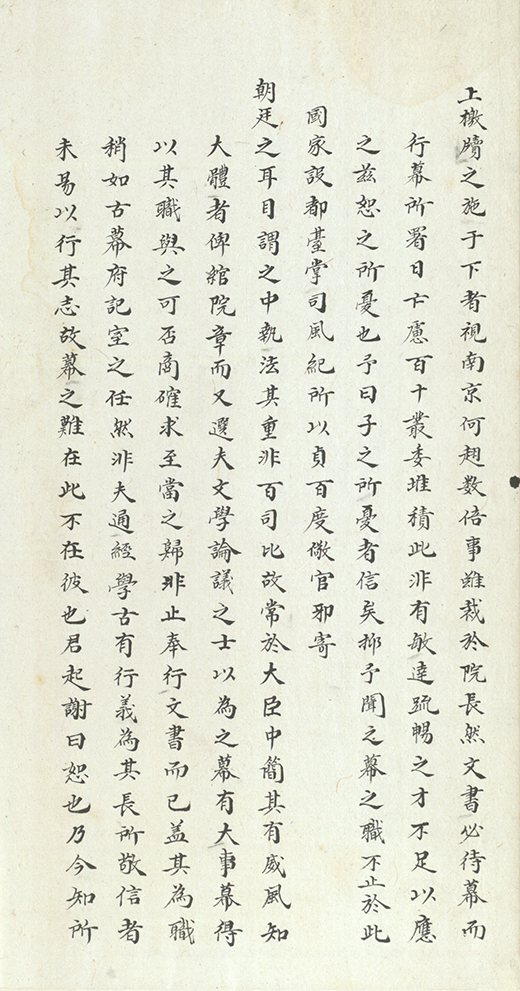 上檄牘之施于下者視南京何趐数倍事雖裁於院長然文書必待幕而
行幕所署日亡慮百十叢委堆積此非有敏達踈暢之才不足以應
之兹恕之所憂也予曰子之所憂者信矣抑予聞之幕之職不止於此
國家設都臺掌司風紀所以貞百度儆官邪寄
朝廷之耳目謂之中執法其重非百司比故常於大臣中簡其有威風知
大體者俾綰院章而又選夫文學論議之士以為之幕有大事幕得
以其職與之可否商確求至當之歸非止奉行文書而已盖其為職
稍如古幕府記室之任然非夫通經學古有行義為其長所敬信者
未易以行其志故幕之難在此不在彼也君起謝曰恕也乃今知所